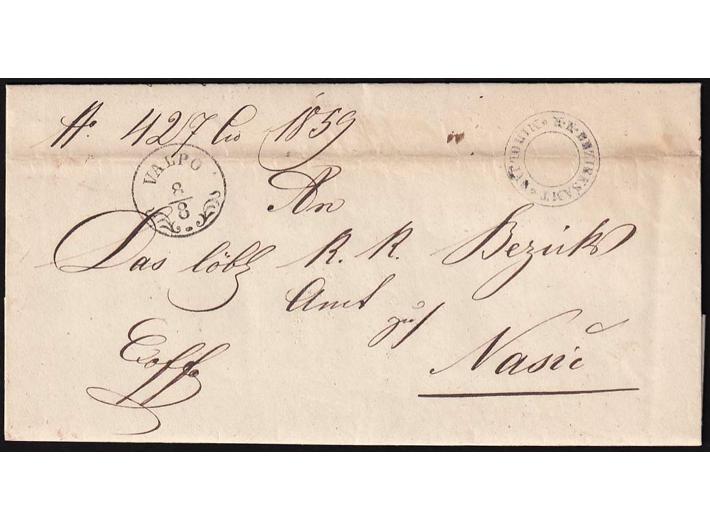 No 427 Civ 1859
VALPO
8/8
K.K. BEZIRKSAMT
An
Das löbl K. K. Bezirks
Amt
zu
Našic
Exoffo